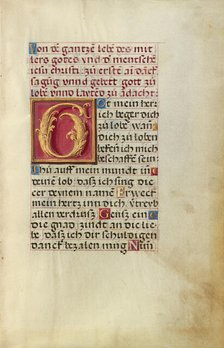 Von dē gantzē lebē des mit
lers gottes vnd d' mentschē
vn̄ Christi zu erste ai dack
sagūg vnnd gebett gott zu
lobē vnnd lavted zu andacht
Ot mein hertz
ich beger dich
zu lobē wan̄
dich zu loben
beken̄ ich mich
beschaffē sein:
Thu auff mein mundt in
deine lob dasz ich sing die
eer deynem namē Erweck
mein hertz inn dich v̄ntreyb
allen verdrusz Geusz ein
die gnad zindt an die lie
be dasz ich dir schuldigen
danck bezalen mug Nūn